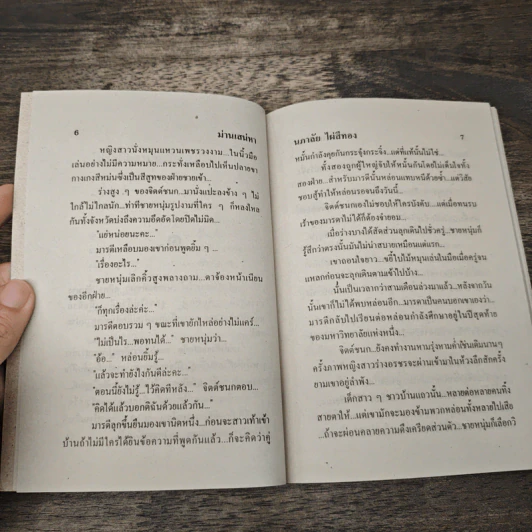 6 ม่านเสน่หา
หญิงสาวนั่งหมุนแหวนเพชรวงงาม...ในนิ้วมือ
เล่นอย่างไม่มีความหมาย...กระทั่งเหลือบไปเห็นปลายขา
กางเกงสีหม่นซึ่งเป็นสีสูทของฝ่ายชายเข้า...
ร่างสูง ๆ ของจิตต์ชนก...มานั่งแปะลงข้าง ๆ ไม่
ใกล้ไม่ไกลนัก...ท่าทีชายหนุ่มรูปงามที่ใคร ๆ ก็หลงใหล
กันทั้งจังหวัดบ่งถึงความอึดอัดโดยปิดไม่มิด...
"แย่หน่อยนะคะ..."
มารตีเหลือบมองเขาก่อนพูดยิ้ม ๆ ...
"เรื่องอะไร..."
ชายหนุ่มเลิกคิ้วสูงพลางถาม...ตาจ้องหน้าเนียน
ของอีกฝ่าย...
"ก็ทุกเรื่องล่ะค่ะ..."
มารตีตอบรวม ๆ ขณะที่เขายักไหล่อย่างไม่แคร์...
"ไม่เป็นไร...พอทนได้..." ชายหนุ่มว่า...
"อ้อ..." หล่อนยิ้มรู้...
"แล้วจะทำยังไงกันดีล่ะคะ..."
"ตอนนี้ยังไม่รู้...ไว้คิดทีหลัง..." จิตต์ชนกตอบ...
"คิดได้แล้วบอกดิฉันด้วยแล้วกัน..."
มารตีลุกขึ้นยืนมองเขานิดหนึ่ง...ก่อนจะสาวเท้าเข้า
บ้านถ้าไม่มีใครได้ยินข้อความที่พูดกันแล้ว...ก็จะคิดว่าคู่
นภาลัย ไผ่สีทอง 7
หมั้นกำลังคุยกันกระจุ๋งกระจิ๋ง...แต่ที่แท้นั้นไม่ใช่...
ทั้งสองถูกผู้ใหญ่จับให้หมั้นกันโดยไม่เต็มใจทั้ง
สองฝ่าย...สำหรับมารตีนั้นหล่อนแทบหนีด้วยซ้ำ...แต่วิสัย
ชอบสู้ทำให้หล่อนรอจนถึงวันนี้...
จิตต์ชนกเองไม่ชอบให้ใครบังคับ...แต่เมื่อทนรบ
เร้าของมารดาไม่ได้ก็ต้องจำยอม...
เมื่อร่างบางได้สัดส่วนลุกเดินไปชั่วครู่...ชายหนุ่มก็
รู้สึกว่าตรงนั้นมันไม่น่าสบายเหมือนแต่แรก...
เขาถอนใจยาว...ขยี้ใบไม้หมุนเล่นในมือเมื่อครู่จน
แหลกก่อนจะลุกเดินตามเข้าไปบ้าง...
นั้นเป็นเวลากว่าสามเดือนล่วงมาแล้ว...หลังจากวัน
นั้นเขาก็ไม่ได้พบหล่อนอีก...มารดาเป็นคนบอกเขาเองว่า...
มารตีกลับไปเรียนต่อหล่อนกำลังศึกษาอยู่ในปีสุดท้าย
ของมหาวิทยาลัยแห่งหนึ่ง...
จิตต์ชนก...ยังคงทำงานหามรุ่งหามค่ำเช่นเดิมนาน ๆ
ครั้งภาพหญิงสาวร่างอรชรจะผ่านเข้ามาในห้วงลึกสักครั้ง
ยามเขาอยู่ลำพัง...
เด็กสาว ๆ ชาวบ้านแถวนั้น...หลายต่อหลายคนทิ้ง
สายตาให้...แต่เขามักจะมองข้ามพวกหล่อนทั้งหลายไปเสีย
...ถ้าจะผ่อนคลายความตึงเครียดส่วนตัว...ชายหนุ่มก็เลือกวิ